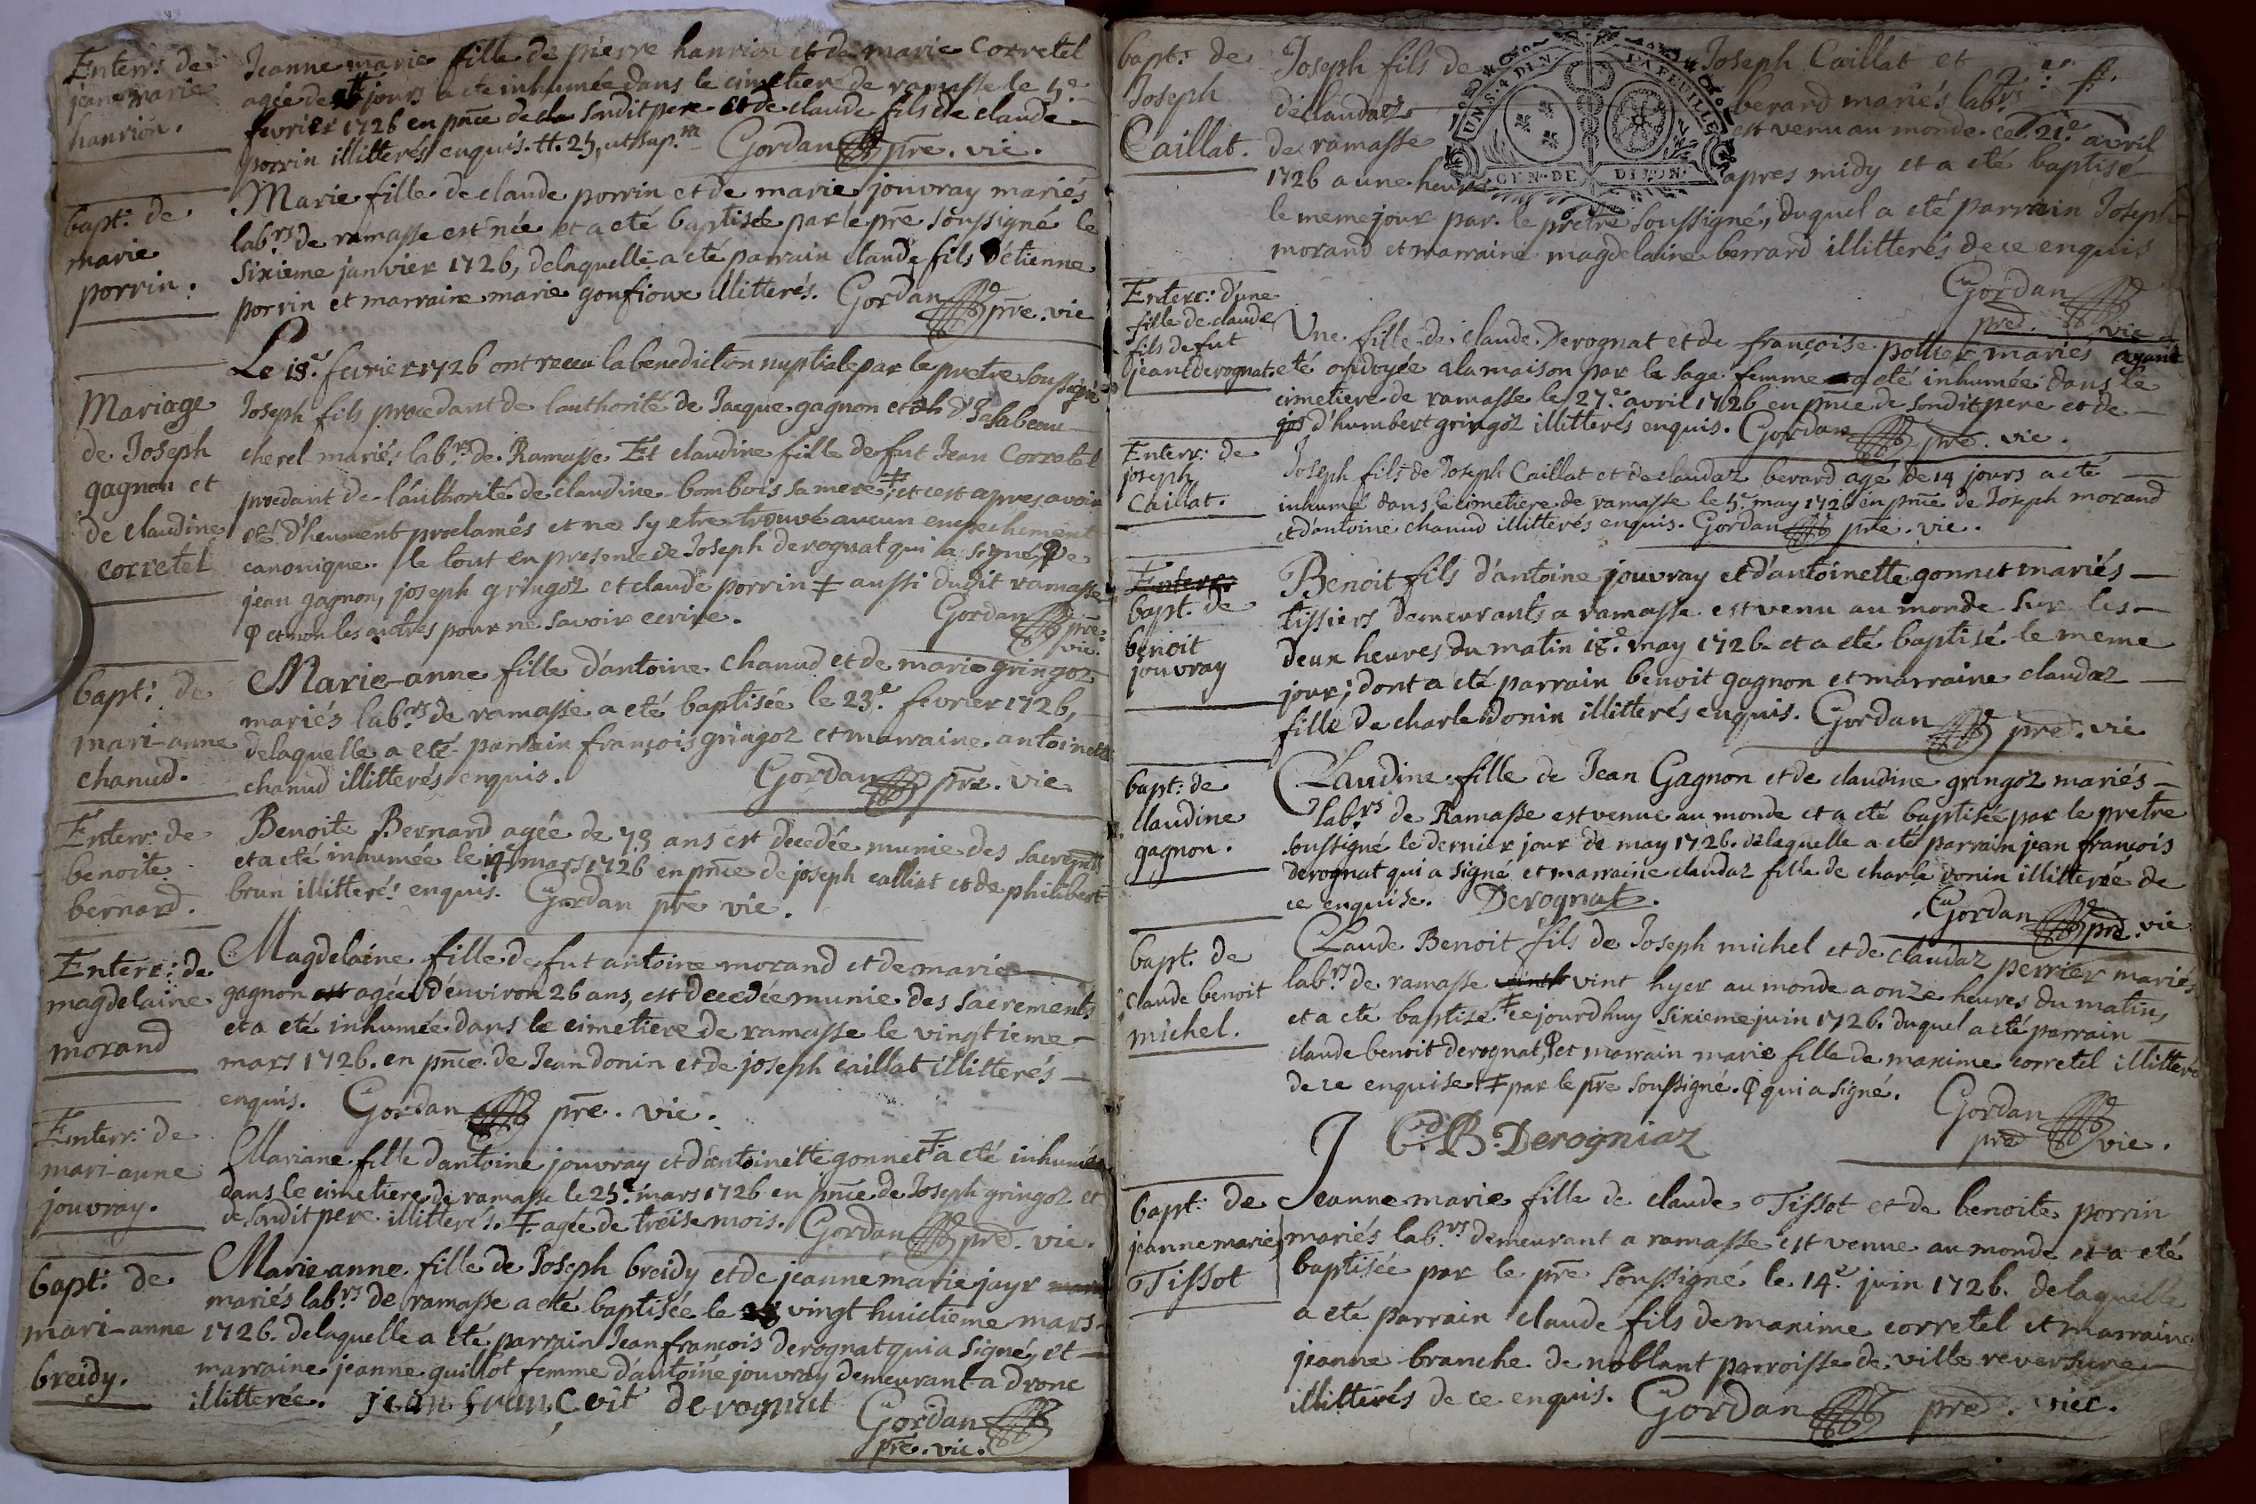 Enterr: de
jeanne marie
hanrion.
Jeanne marie fille de pierre hanrion et de marie Corretel
agée de jours a eté inhumée dans le cimetiere de ramasse le 5e
fevrier 1726 en pnce de sondit pere et de claude fils de claude
porrin illitterés enquis. Gordan pre. vic.
bapt: de
marie
porrin.
Marie fille de claude porrin et de marie jouvray mariés
labrs de ramasse est née et a eté baptisée par le pre soussigné le
sixieme janvier 1726, delaquelle a eté parrain claude fils d'étienne
porrin et marraine marie goufioux illitterés. Gordan pre. vic
Mariage
de Joseph
gagnon et
de claudine
corretel
Le 18e fevrier 1726 ont receu la benediction nuptiale par le pretre soussigné
Joseph fils procedant de l'authorité de Jacque gagnon et d'Isabeau
cherel mariés labrs de Ramasse Et claudine fille de fut Jean Corretel
procedant de l'authorité de claudine bombois sa mere ‡, et c'est apres avoir
eté d'heument proclamés et ne s'y etre trouvé aucun empechement
canonique. le tout en presence de Joseph derognat qui a signé, φ de
jean gagnon, joseph gringoz et claude porrin ‡ aussi dudit ramasse
φ et non les autres pour ne savoir ecrire. Gordan pre.
vic.
bapt: de
mari-anne
chanud.
Marie-anne fille d'antoine chanud et de marie gringoz
mariés labrs de ramasse a eté baptisée le 23e fevrier 1726,
delaquelle a eté parrain françois gringoz et marraine antoinette
chanud illitterés enquis. Gordan pre. vic
Enterr: de
benoite
bernard.
Benoite Bernard agée de 73 ans est decedée munie des sacremts
et a eté inhumée le mars 1726 en pnce de joseph calliat et de philibert
brun illitterés enquis. Gordan pre vic.
Enterr: de
magdelaine
morand
Magdelaine fille de fut antoine morand et de marie
gagnon agée d'environ 26 ans, est decedée munie des sacrements
et a eté inhumée dans le cimetiere de ramasse le vingtieme
mars 1726. en pnce de Jean donin et de joseph caillat illitterés
enquis. Gordan pre. vic.
Enterr: de
mari-anne
jouvray.
Mariane fille d'antoine jouvray et d'antoinette gonnet ‡ a eté inhumée
dans le cimetiere de ramasse le 25e mars 1726 en pnce de Joseph gringoz et
de sondit pere illitterés. ‡ agée de treise mois. Gordan pre. vic.
bapt: de
mari-anne
breidy.
Marie anne fille de Joseph breidy et de jeanne marie jayr
mariés labrs de ramasse a eté baptisée le vingt huictieme mars
1726. delaquelle a eté parrain Jean françois derognat qui a signé, et
marraine jeanne guillot femme d'antoine jouvray demeurant a dronc
illitterée. jean françoit derognat Gordan
pre. vic.
bapt: de
Joseph
Caillat.
Joseph fils de Joseph Caillat et
de claudaz berard mariés labrs
de ramasse est venu au monde ce 21e avril
1726 a une heure apres midy et a eté baptisé
le meme jour par le pretre soussigné, duquel a eté parrain Joseph
morand et marraine magdelaine berrard illitterés de ce enquis
Gordan
pre. vic
UN S. 4 DEN. LA FEUILLE
GEN. DE DIJON
Enterr: d'une
fille de claude
fils de fut
jean derognat
Une fille de claude Derognat et de françoise pottier mariés ayant
eté ondoyée a la maison par le sage femme a eté inhumée dans le
cimetiere de ramasse le 27e avril 1726 en pnce de sondit pere et de
d'humbert gringoz illitterés enquis. Gordan pre. vic.
Enterr: de
joseph
Caillat.
Joseph fils de Joseph Caillat et de claudaz berard agé de 14 jours a eté
inhumé dans le cimetiere de ramasse le 5e may 1726 en pnce de Joseph morand
et d'antoine chanud illitterés enquis. Gordan pre. vic.
Enterr:
bapt. de
benoit
jouvray
Benoit fils d'antoine jouvray et d'antoinette gonnet mariés
tissiers demeurants a ramasse est venu au monde sur les
deux heures du matin 18e may 1726. et a eté baptisé le meme
jour; dont a eté parrain benoit gagnon et marraine claudaz
fille de charle donin illitterés enquis. Gordan pre. vic
bapt: de
claudine
gagnon.
Claudine fille de Jean Gagnon et de claudine gringoz mariés
labrs de Ramasse est venue au monde et a eté baptisée par le pretre
soussigné le dernier jour de may 1726. delaquelle a eté parrain jean françois
derognat qui a signé et marraine claudaz fille de charle donin illitterée de
ce enquise. Derognat. Gordan pre. vic
bapt. de
claude benoit
michel.
Claude Benoit fils de Joseph michel et de claudaz perrier mariés
labrs de ramasse vint hyer au monde a onze heures du matin,
et a eté baptisé ‡ cejourdhuy sixieme juin 1726. duquel a eté parrain
claude benoit derognat, φ et marrain marie fille de maxime corretel illitteré
de ce enquise. ‡ par le pre soussigné. φ qui a signé. Gordan
pre vic.
C.d B. Derogniaz
bapt: de
jeanne marie
Tissot
Jeanne marie fille de claude Tissot et de benoite porrin
mariés labrs demeurant a ramasse est venue au monde et a eté
baptisée par le pre soussigné le 14e juin 1726. delaquelle
a eté parrain claude fils de maxime corretel et marraine
jeanne branche de noblant parroisse de ville reversure
illitterés de ce enquis. Gordan pre. vicc.